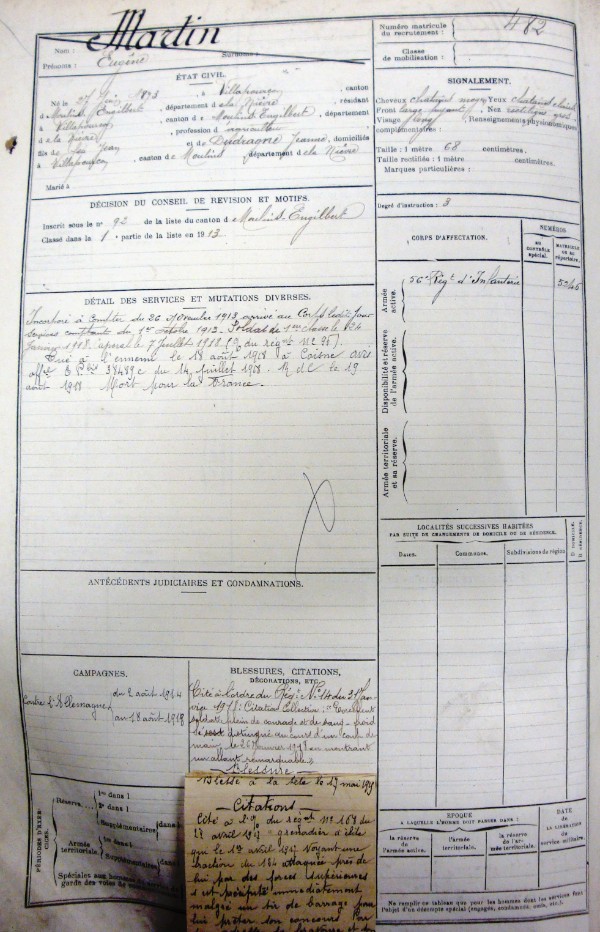 Nom : Martin
Prénoms : Eugène
Surnoms :
ÉTAT CIVIL.
Né le 27 1893, à Villapourçon, canton
de Moulins Engilbert, département de la Nièvre, résidant
à Villapourçon, canton de Moulins Engilbert, département
de la Nièvre, profession d agriculteur
fils de feu Jean et de Dudragne Jeanne, domiciliés
à Villapourçon, canton de Moulins, département de la Nièvre
Marié à
DÉCISION DU CONSEIL DE REVISION ET MOTIFS.
Inscrit sous le n° 92 de la liste du canton de Moulins-Engilbert
Classé dans la 1 partie de la liste en 1913.
DÉTAIL DES SERVICES ET MUTATIONS DIVERSES.
Incorporé à compter du 26 Novembre 1913, arrivé au Corps ledit jour
1er octobre 1913. Soldat de 1ère classe le 24
Janvier 1918. Caporal le 7 Juillet 1918
Tué à l'ennemi le 18 août 1918 à avis
du 14 1918. le 19
août 1918 Mort pour la France.
ANTÉCÉDENTS JUDICIAIRES ET CONDAMNATIONS.
CAMPAGNES.
Contre l'Allemagne
du 2 août 1914
au 18 août 1918
BLESSURES, CITATIONS,
DÉCORATIONS, ETC.
Cité à l'ordre du Régt N° 14 du 31 Jan-
vier 1918 : Citation Collective : "Excellent
soldat, plein de courage et de sang-froid
s'est distingué au cours d'un coup de
main, le 26 Janvier 1918 en montrant
un allant remarquable"
Blessure
Blessé à la tête le 17 mai
Citations
Cité à l'o/ du régmt N° 168 du
27 avril "grenadier d'élite
qui le 17 avril voyant une
fraction du 134 attaquée près de
lui par des forces supérieures
s'est précipité immédiatement
malgré un tir de barrage pour
lui prêter son concours. Par
PÉRIODES D'EXERCICES.
Réserve
1re dans l
2e dans l
Supplémentaires dans l
Armée territoriale
dans l
Supplémentaires dans l
Spéciales aux hommes
garde des voies de
Numéro matricule
du recrutement : 482
Classe
de mobilisation :
SIGNALEMENT.
Cheveux châtains moyen Yeux
Front Nez rectiligne gros
Visage long Renseignements physionomiques
complémentaires :
Taille : 1 mètre 68 centimètres.
Taille rectifiée : 1 mètre centimètres.
Marques particulières :
Degré d'instruction : 3
CORPS D'AFFECTATION.
NUMÉROS
AU CONTRÔLE spécial.
MATRICULE OU AU répertoire.
Armée active.
56e Régt d'Infanterie
Disponibilité et réserve de l'armée active.
Armée territoriale et sa réserve.
LOCALITÉS SUCCESSIVES HABITÉES
PAR SUITE DE CHANGEMENTS DE DOMICILE OU DE RÉSIDENCE.
Dates.
Communes.
Subdivisions de région
D. DOMICILE.
R. RÉSIDENCE.
ÉPOQUE
A LAQUELLE L'HOMME DOIT PASSER DANS :
la réserve de l'armée active.
l'armée territoriale.
la réserve de l'armée territoriale.
DATE
DE LA LIBÉRATION
du service militaire.
Ne remplir ce tableau que pour les hommes dont les services font
l'objet d'un décompte spécial (engagés, etc.).